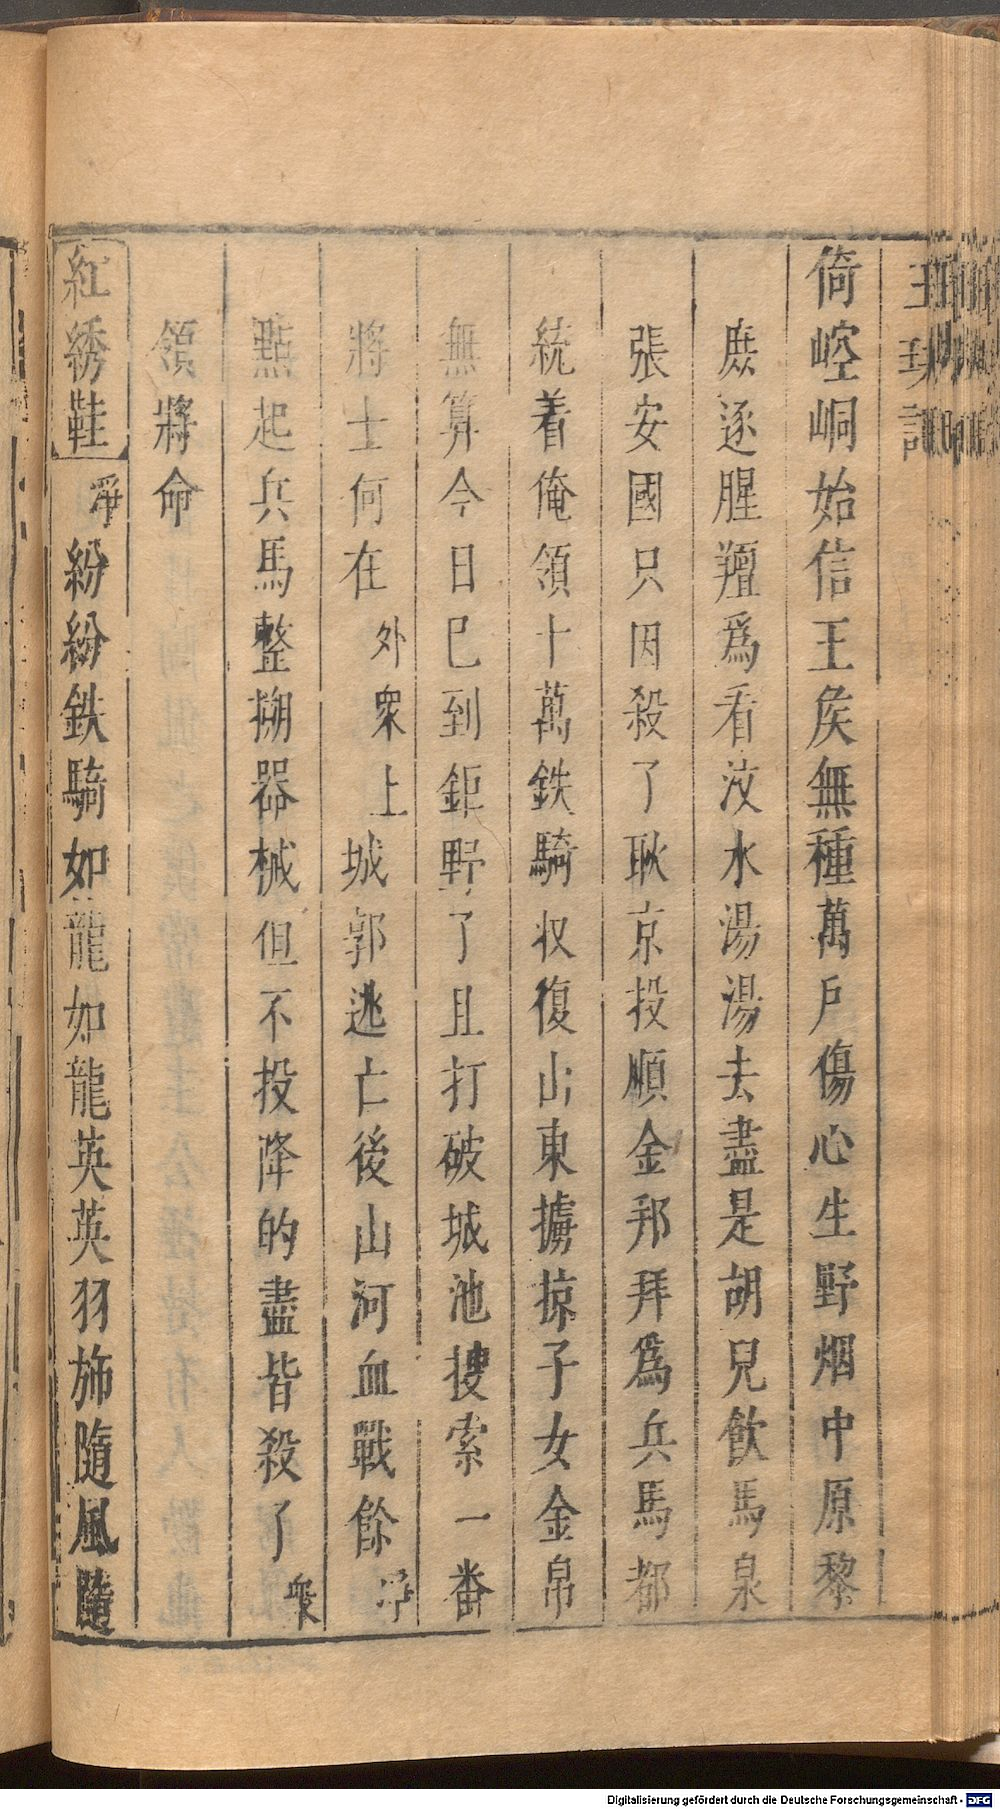 倚崆峒始信王矦無種萬戶傷心生野烟中原黎
庻逐腥羶爲看汶水湯湯去盡是胡兒飲馬泉
張安國只因殺了耿京投順金邦拜爲兵馬都
統着俺領十萬鉄騎収復山東擄掠子女金帛
無算今日巳到鉅野了且打破城池搜索一番
將士何在外衆上城郭逃亡後山河血戰餘淨
點起兵馬整搠器械但不投降的盡皆殺了衆
領將命
紅綉鞋淨紛紛鉄騎如龍如龍英英羽斾隨風隨
Digitalisierung gefördert durch die Deutsche Forschungsgemeinschaft - DFG